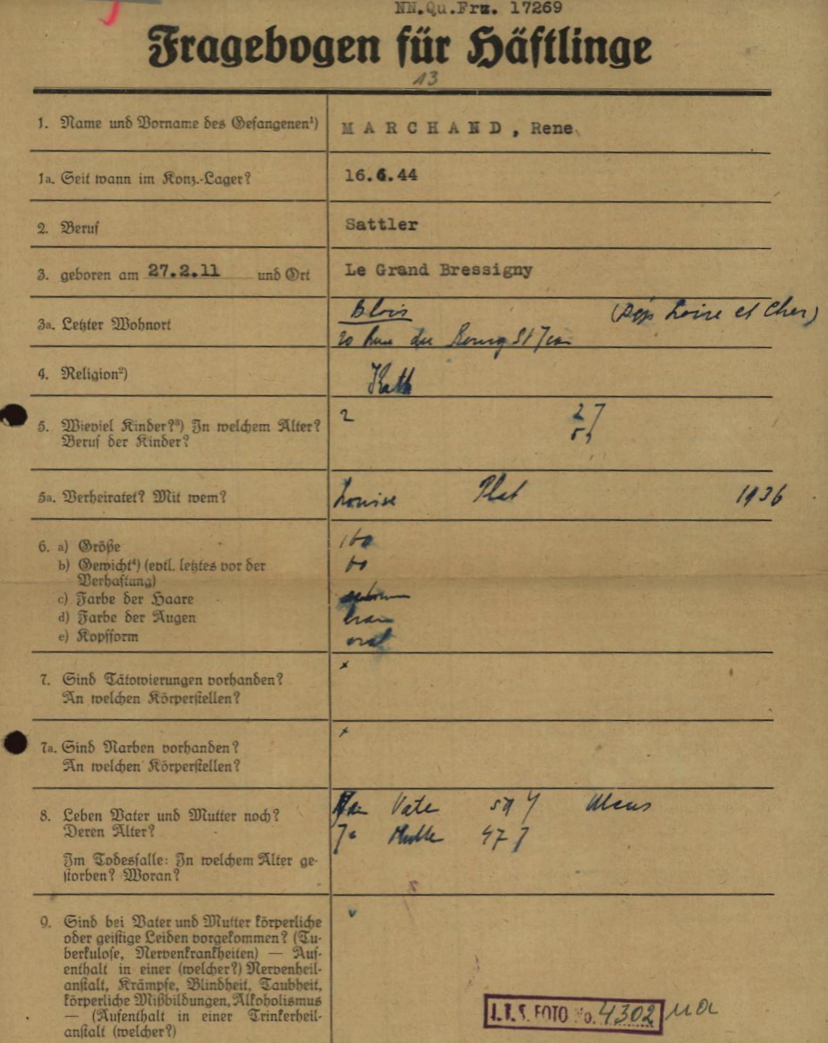 NN.Qu.Frz. 17269
Fragebogen für Häftlinge
13
1. Name und Vorname des Gefangenen¹) MARCHAND, Rene
1a. Seit wann im Konz.-Lager? 16.6.44
2. Beruf Sattler
3. geboren am 27.2.11 und Ort Le Grand Bressigny
3a. Letzter Wohnort Blois (Dép Loire et Cher)
20 Rue du Bourg St Jean
4. Religion²) Kath
5. Wieviel Kinder?³) In welchem Alter? 2 2 J
Beruf der Kinder? 5 J
5a. Verheiratet? Mit wem? Louise Plat 1936
6. a) Größe 160
b) Gewicht⁴) (evtl. letztes vor der 60
Verhaftung)
c) Farbe der Haare
d) Farbe der Augen braun
e) Kopfform oval
7. Sind Tätowierungen vorhanden? x
An welchen Körperstellen?
7a. Sind Narben vorhanden? x
An welchen Körperstellen?
8. Leben Vater und Mutter noch? Vate J
Deren Alter? Ja Mutte 47 J
Im Todesfalle: In welchem Alter ge-
storben? Woran?
9. Sind bei Vater und Mutter körperliche
oder geistige Leiden vorgekommen? (Tu-
berkulose, Nervenkrankheiten) — Auf-
enthalt in einer (welcher?) Nervenheil-
anstalt, Krämpfe, Blindheit, Taubheit,
körperliche Mißbildungen, Alkoholismus
— (Aufenthalt in einer Trinkerheil-
anstalt (welcher?)
I.T.S. FOTO No. 4302